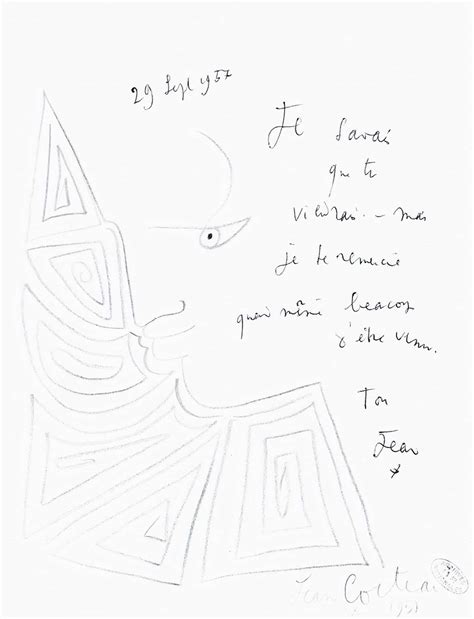 29 Sept 1957
Je savais
que tu
viendrais. – mais
je te remercie
quand même beaucoup
d'être venu.
Ton
Jean
Jean Cocteau